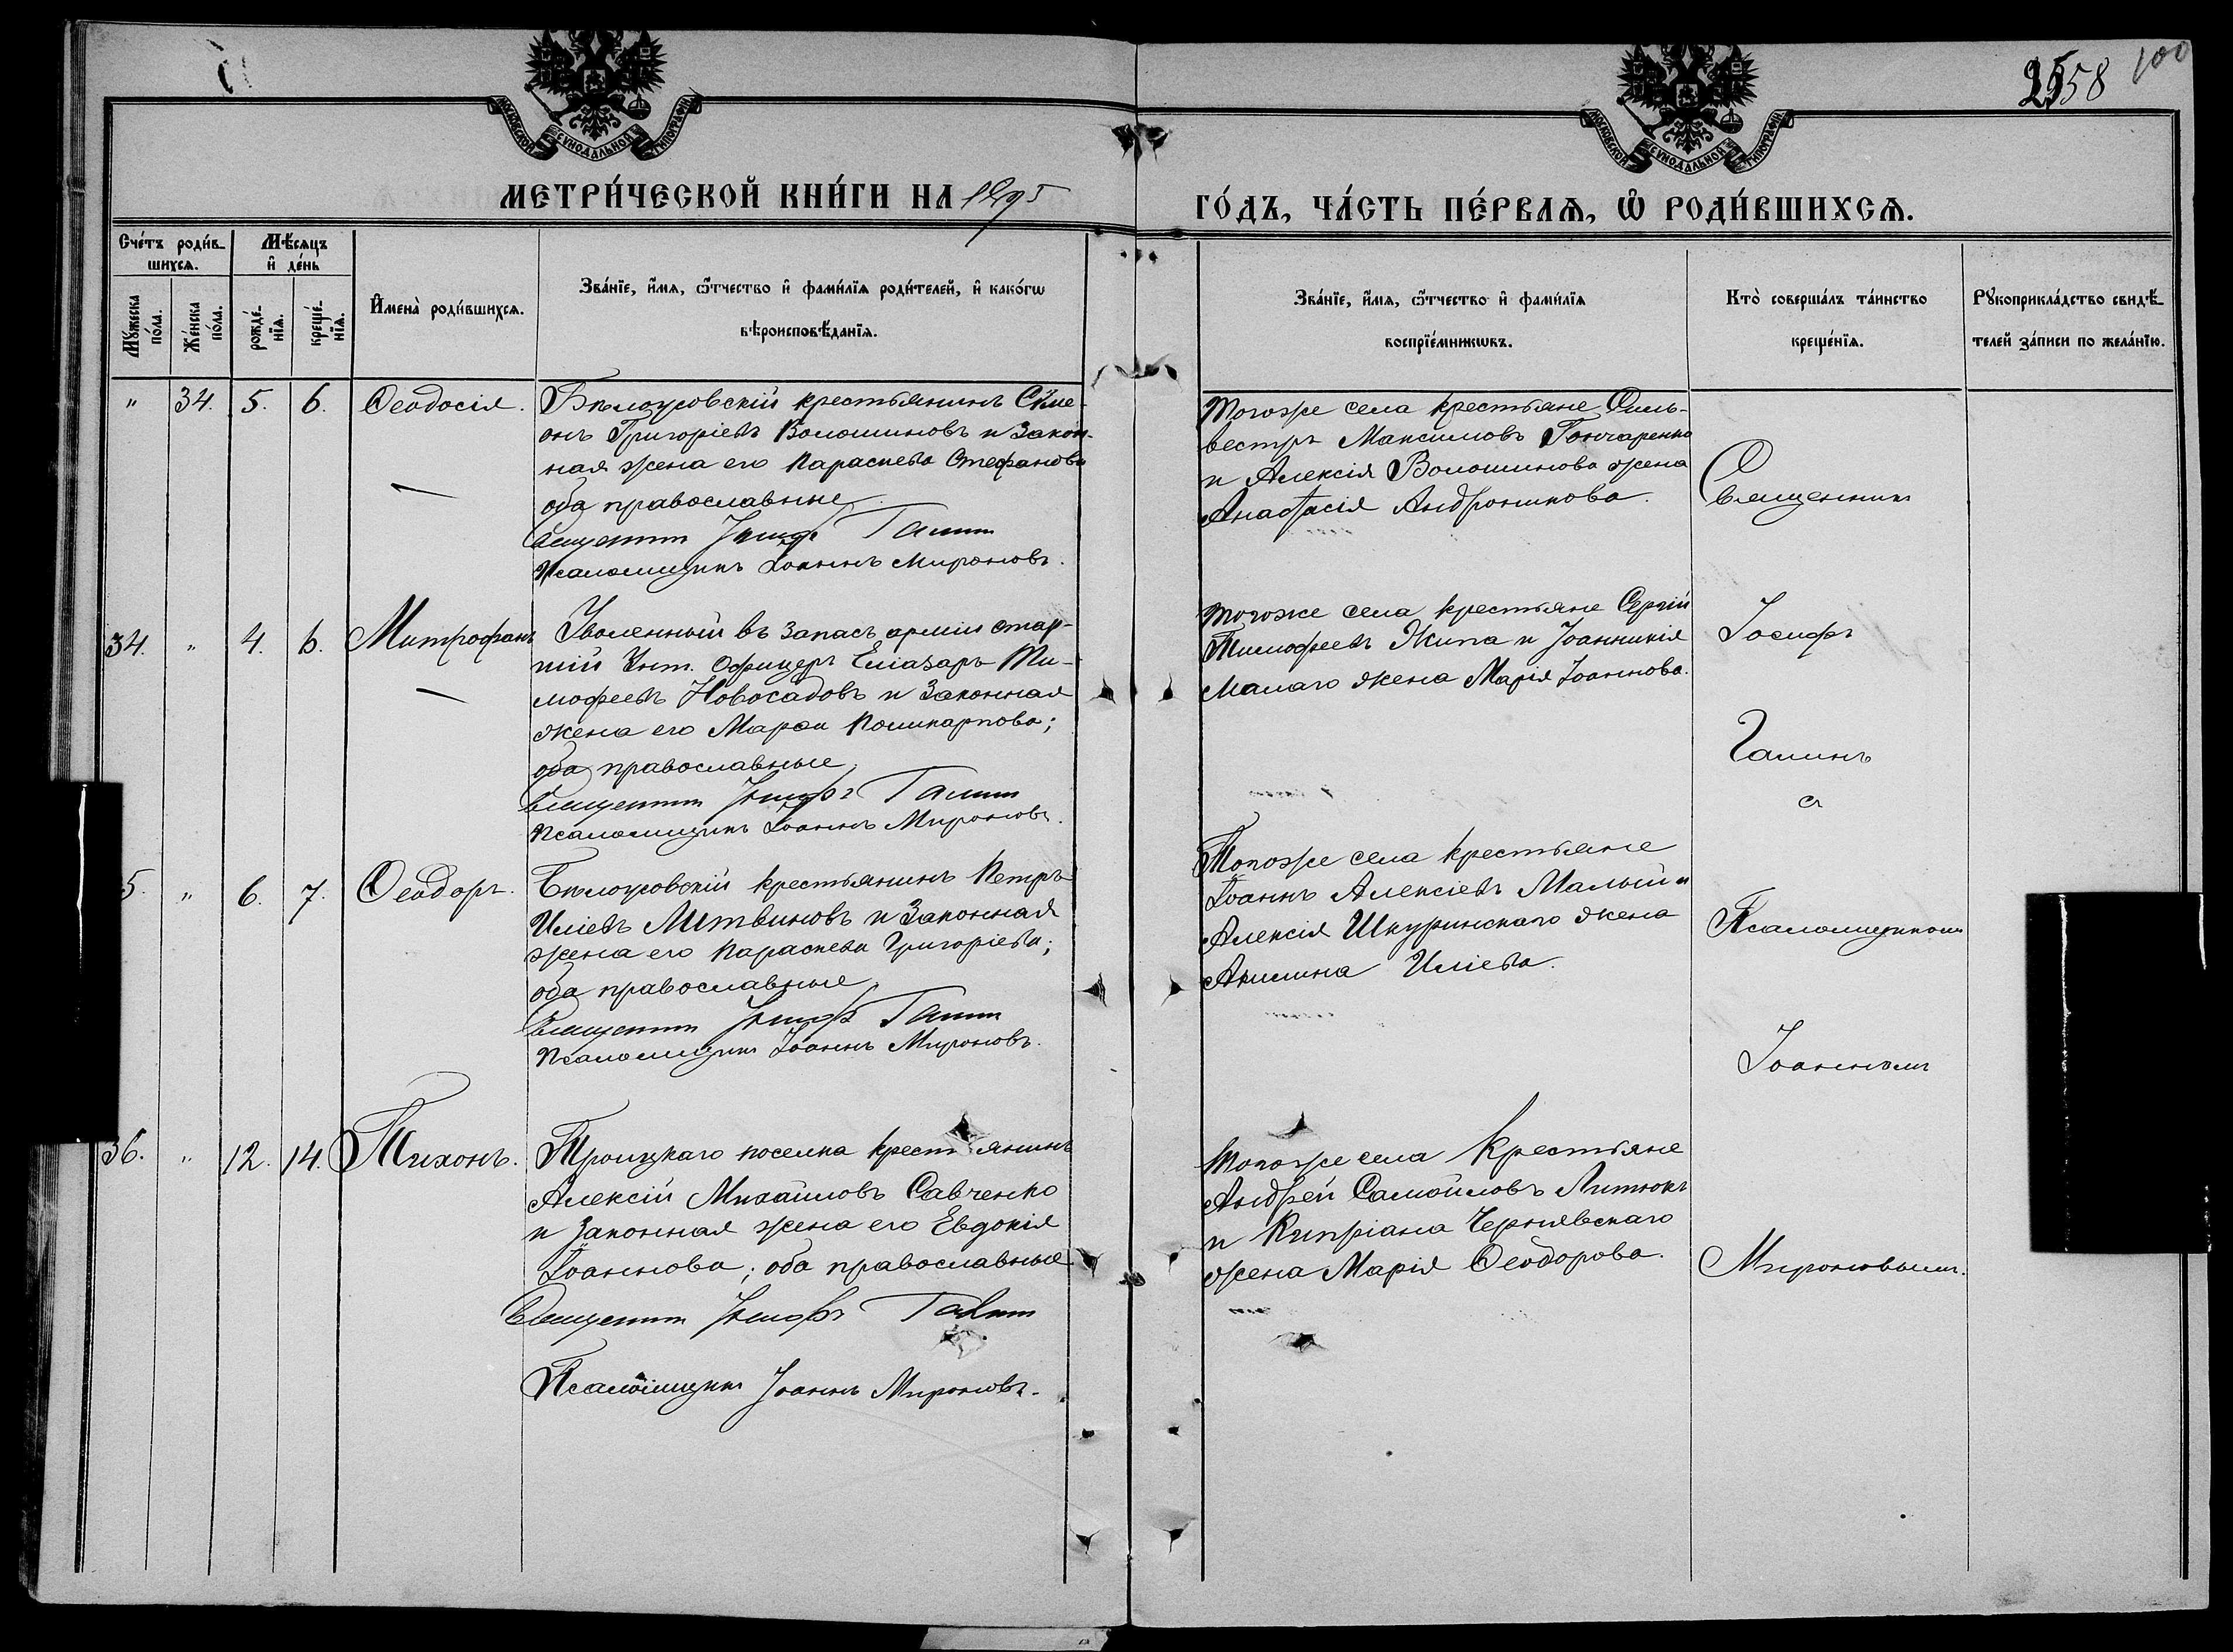 МОСКОВСКОЙ СѴНОДАЛЬНОЙ ТИПОГРАФІИ
МОСКОВСКОЙ СѴНОДАЛЬНОЙ ТИПОГРАФІИ
58 100
МЕТРИ́ЧЕСКОЙ КНИ́ГИ НА 1895
ГО́ДЪ, ЧА́СТЬ ПЕ́РВАѦ, Ѡ҆ РОДИ́ВШИХСѦ.
Сче́тъ роди́в-
шихсѧ.
Мѣ́сѧцъ
и҆ де́нь
Мꙋ́жеска
по́ла.
Же́нска
по́ла.
рожде́-
нїѧ.
креще́-
нїѧ.
И҆мена̀ роди́вшихсѧ.
Зва́нїе, и҆́мѧ, ѻ҆́тчество и҆ фами́лїѧ роди́телей, и҆ како́гѡ
вѣроисповѣ́данїѧ.
Зва́нїе, и҆́мѧ, ѻ҆́тчество и҆ фами́лїѧ
воспрїе́мникѡвъ.
Кто̀ соверша́лъ та́инство
креще́нїѧ.
Рꙋкоприкла́дство свидѣ́-
телей за́писи по жела́нїю.
" 34. 5. 6. Ѳеодосія.
Бѣлоусовскій крестьянинъ Симе-
онъ Григоріевъ Волошиновъ и закон-
ная жена его Параскева Стефанова
оба православные
Священникъ Іосифъ Галинъ
Псаломщикъ Іоаннъ Мироновъ.
Тогоже села крестьяне Силь-
вестръ Максимовъ Гончаренко
и Алексія Волошинова жена
Анастасія Андроникова.
34. " 4. 6. Митрофанъ
Уволенный въ запасъ арміи стар-
шій Унт. Офицеръ Елиазаръ Ти-
мофеевъ Новосадовъ и законная
жена его Марѳа Поликарпова;
оба православные,
Священникъ Іосифъ Галинъ
Псаломщикъ Іоаннъ Мироновъ.
Тогоже села крестьяне Сергій
Тимофеевъ Жила и Іоанникія
Малаго жена Марія Іоаннова.
5. " 6. 7. Ѳеодоръ.
Бѣлоусовскій крестьянинъ Петръ
Иліевъ Литвиновъ и законная
жена его Параскева Григоріева;
оба православные,
Священникъ Іосифъ Галинъ
Псаломщикъ Іоаннъ Мироновъ.
Тогоже села крестьяне
Іоаннъ Алексіевъ Малый и
Алексія Шкуринскаго жена
Акилина Иліева.
36. " 12. 14. Тихонъ.
Троицкаго поселка крестьянинъ
Алексій Михаиловъ Савченко
и законная жена его Евдокія
Іоаннова; оба православные
Священникъ Іосифъ Галинъ
Псаломщикъ Іоаннъ Мироновъ.
Тогоже села крестьяне
Андрей Самойловъ Литюкъ
и Кипріана Чернявскаго
жена Марія Ѳеодорова.
Священникъ
Іосифъ
Галинъ
съ
Псаломщикомъ
Іоанномъ
Мироновымъ.